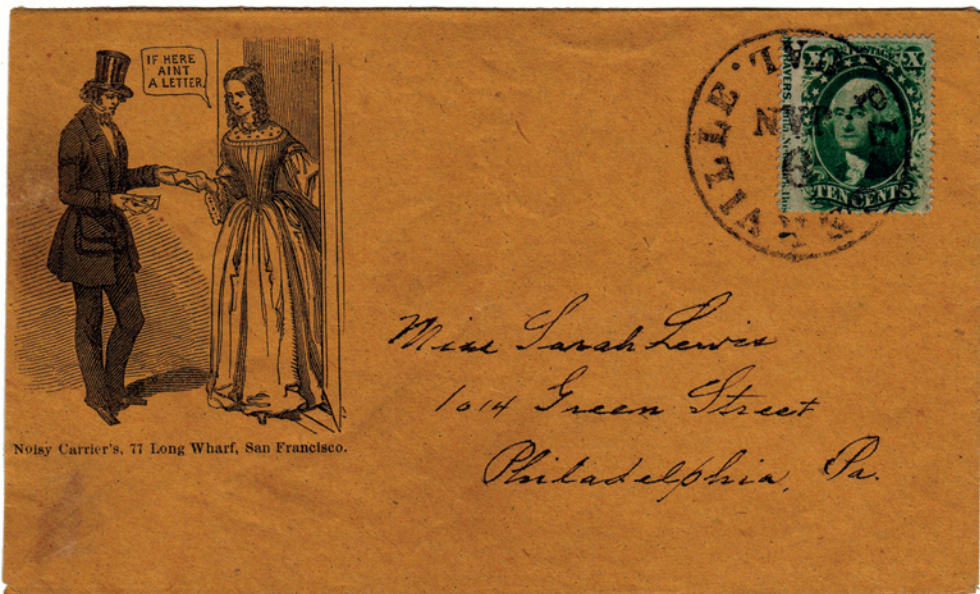 IF HERE
AINT
A LETTER
Noisy Carrier's, 77 Long Wharf, San Francisco.
CAL.
X X
TEN CENTS
Miss Sarah Lewis
1014 Green Street
Philadelphia, Pa.